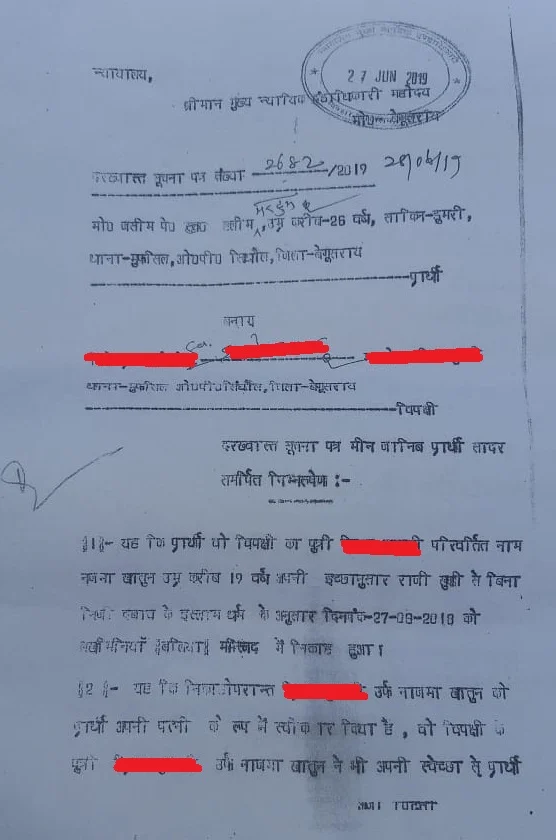 न्यायालय,
27 JUN 2019
श्रीमान मुख्य न्यायिक दंडाधिकारी महोदय
बेगूसराय
दरख्वास्त सूचना पत्र संख्या 2682/2019 28/06/19
मो0 उम्र करीब-26 वर्ष, साकिन-डुमरी,
थाना-मुफसिल, ओ0पी0 सिंघौल, जिला-बेगूसराय
प्रार्थी
बनाम
थाना-मुफसिल ओ0पी0सिंघौल, जिला-बेगूसराय
विपक्षी
दरख्वास्त सूचना पत्र मीन जानिब प्रार्थी सादर
समर्पित निम्नरूपेण :-
§1§- यह कि प्रार्थी वो विपक्षी का पुत्री परिवर्तित नाम
नजमा खातुन उम्र करीब 19 वर्ष अपनी इच्छानुसार राजी खुशी से बिना
किसी दबाव के इस्लाम धर्म के अनुसार दिनांक-27-06-2018 को
मस्जिद में निकाह हुआ।
§2§- यह कि निकाहोपरान्त उर्फ नाजमा खातुन को
प्रार्थी अपनी पत्नी के रूप में स्वीकार किया है, वो विपक्षी के
पुत्री उर्फ नाजमा खातुन ने भी अपनी स्वेच्छा से प्रार्थी